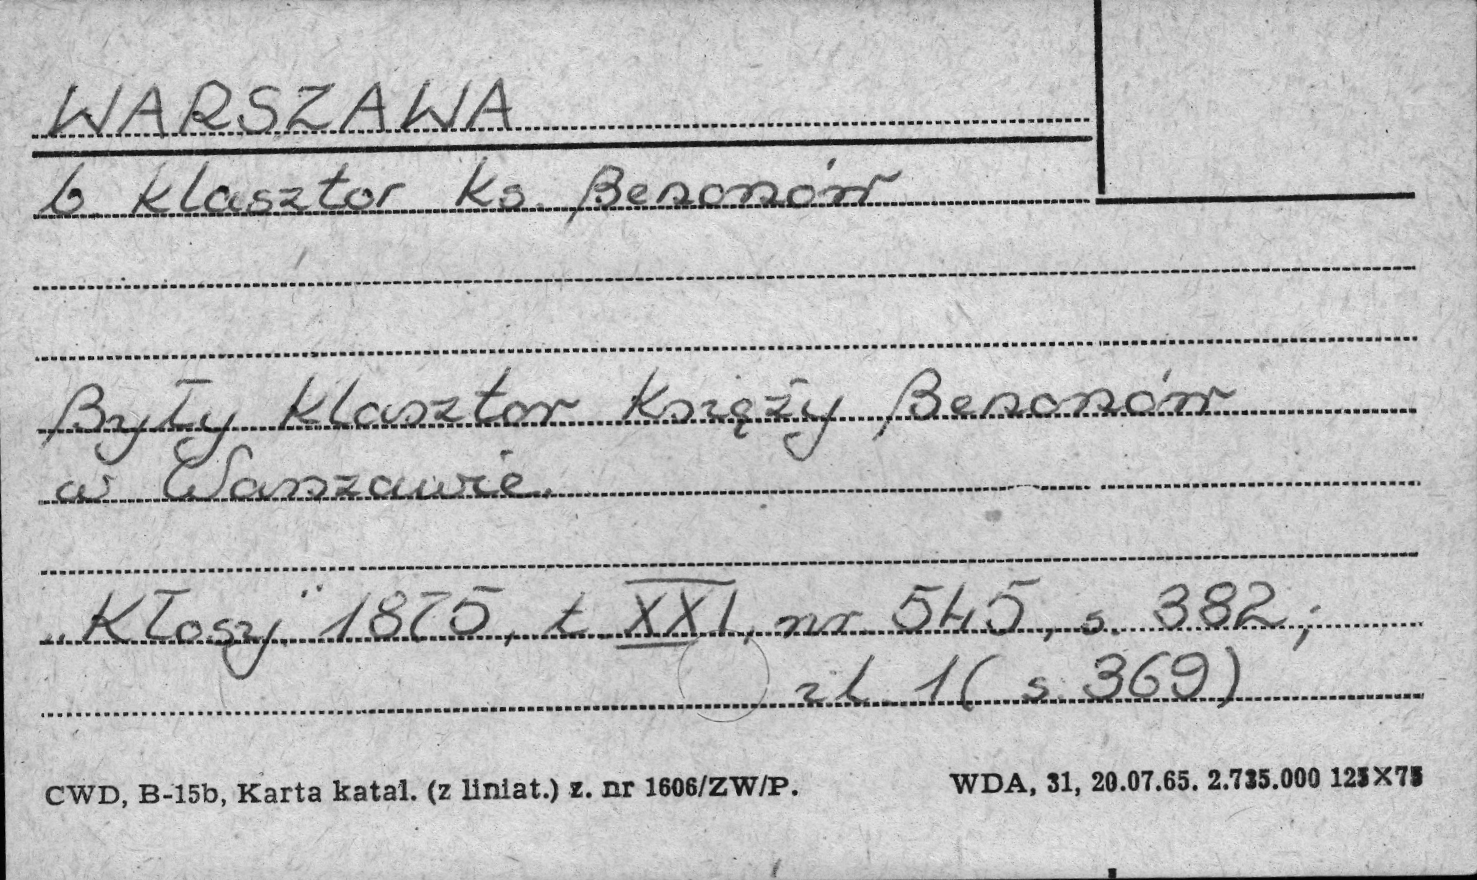 WARSZAWA
b. klasztor ks. Benonów
Były klasztor Księży Benonów
w Warszawie.
"Kłosy" 1875, t. XXI, nr 545, s. 382;
il. 1 (s. 369)
CWD, B-15b, Karta katal. (z liniat.) z. nr 1606/ZW/P.
WDA, 31, 20.07.65. 2.735.000 125×75